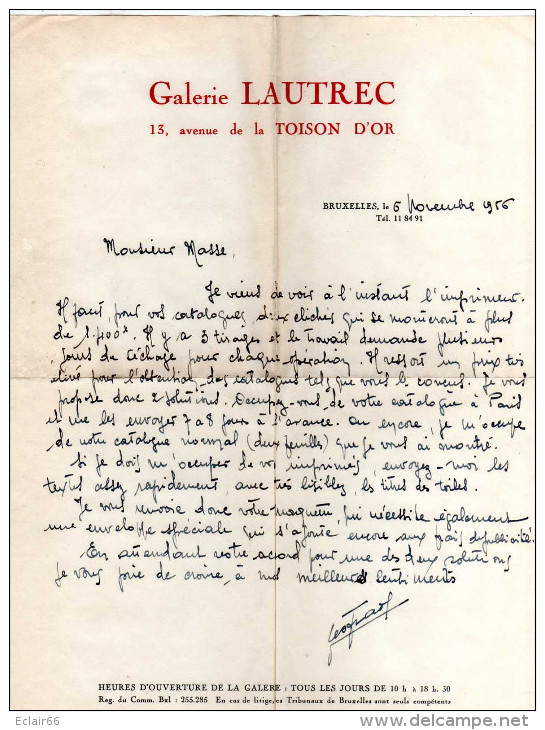 Galerie LAUTREC
13, avenue de la TOISON D'OR
BRUXELLES, le 6 Novembre 1956
Tél. 11 84 91
Monsieur Masse,
Je viens de voir à l'instant l'imprimeur.
Il faut, pour vos catalogues deux clichés qui se monteront à plus
de 1.400 Il y a 3 tirages et le travail demande plusieurs
jours de séchage pour chaque opération. Il ressort un prix très
élevé pour l'obtention des catalogues tels que vous le conceviez. Je vous
propose donc 2 solutions. Occupez-vous de votre catalogue à Paris
et me les envoyer 7 à 8 jours à l'avance. Ou encore, je m'occupe
de notre catalogue normal (deux feuilles) que je vous ai montré.
Si je dois m'occuper de vos imprimés, envoyez-moi les
textes assez rapidement, avec très lisibles, les titres des toiles.
Je vous renvoie donc votre maquette, qui nécessite également
une enveloppe spéciale qui s'ajoute encore aux frais de publicité.
En attendant votre accord pour une des deux solutions
je vous prie de croire, à mes meilleurs sentiments
HEURES D'OUVERTURE DE LA GALERE : TOUS LES JOURS DE 10 h à 18 h. 30
Reg. du Comm. Bxl : 255.285 En cas de litige, les Tribunaux de Bruxelles sont seuls compétents
Eclair66
www.delcampe.net